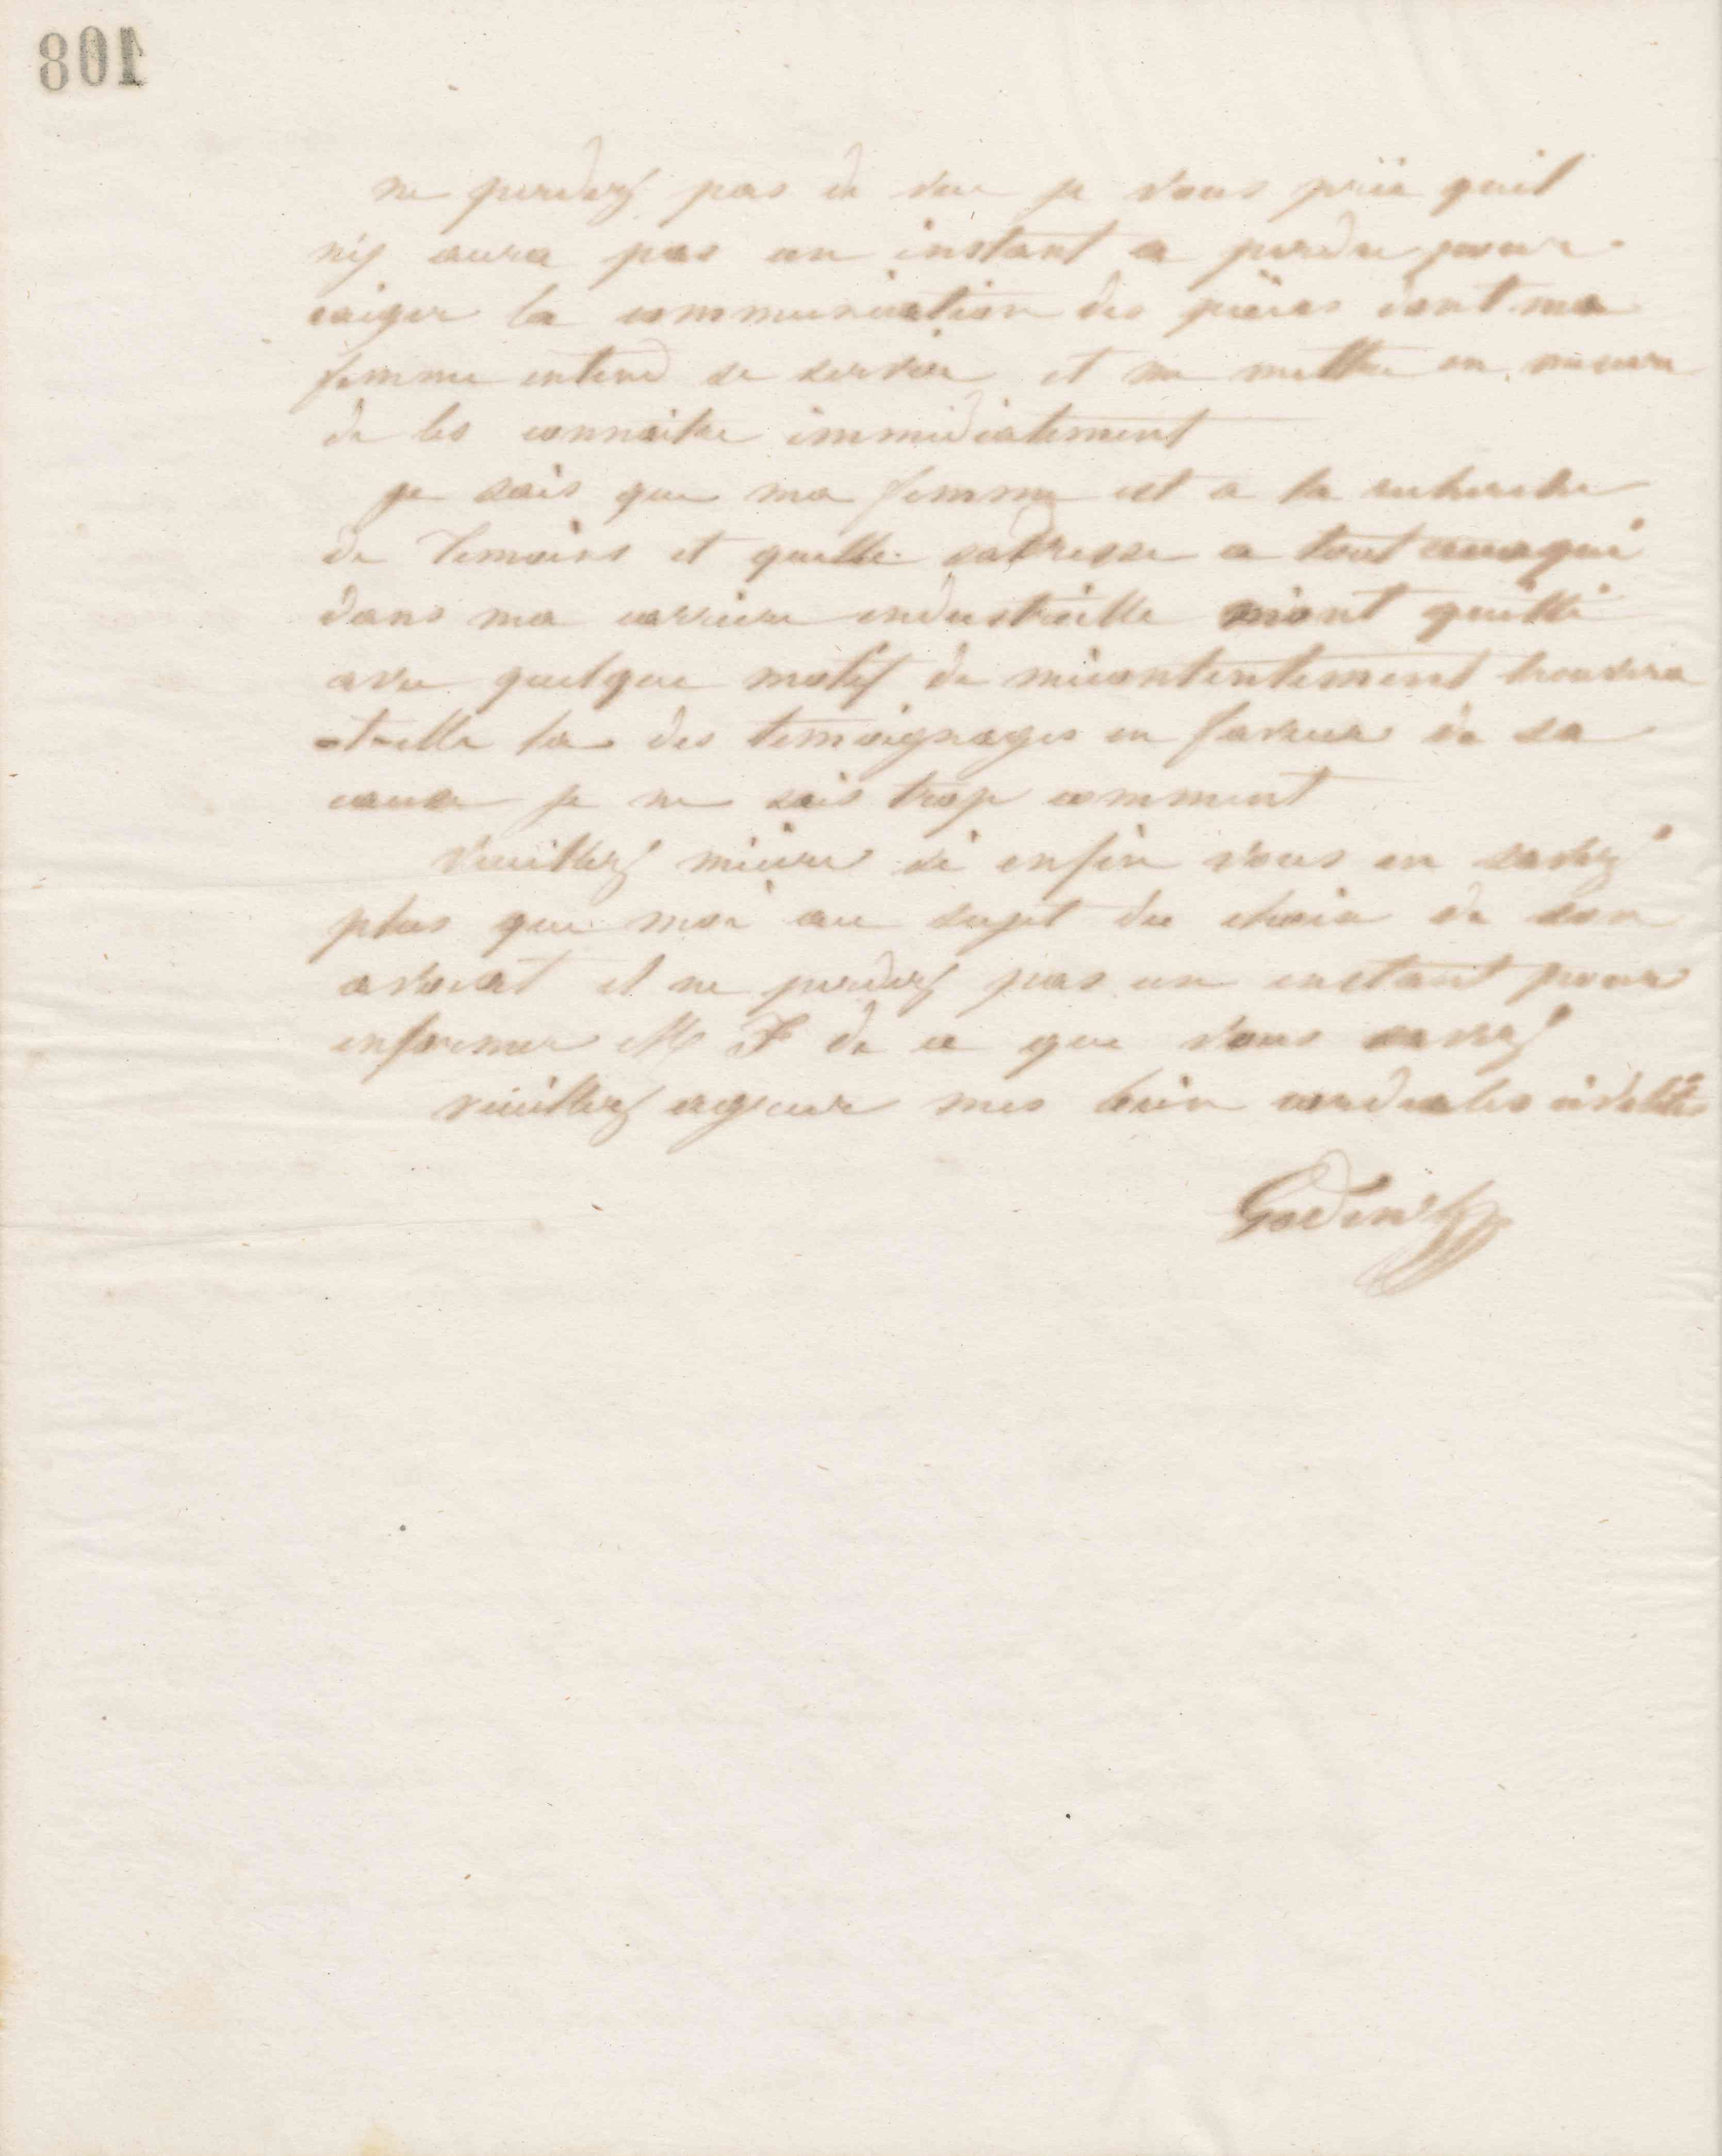 108
ne perdez pas de vue je vous prie quil
ny aura pas un instant a perdre pour
exiger la communication des pièces dont ma
femme entend se servir et me mettre en mesure
de les connaitre immédiatement
je sais que ma femme est a la recherche
de temoins et quelle sadresse a tout ceux qui
dans ma carriere industrielle m'ont quitté
avec quelque motif de mécontentement trouvera
-t-elle la des temoignages en faveur de sa
cause je ne sais trop comment
Veuillez mécrire si enfin vous en savez
plus que moi au sujet du choix de son
avocat et ne perdez pas un instant pour
informer M F de ce que vous savez
veuillez agréer mes bien cordiales
Godin